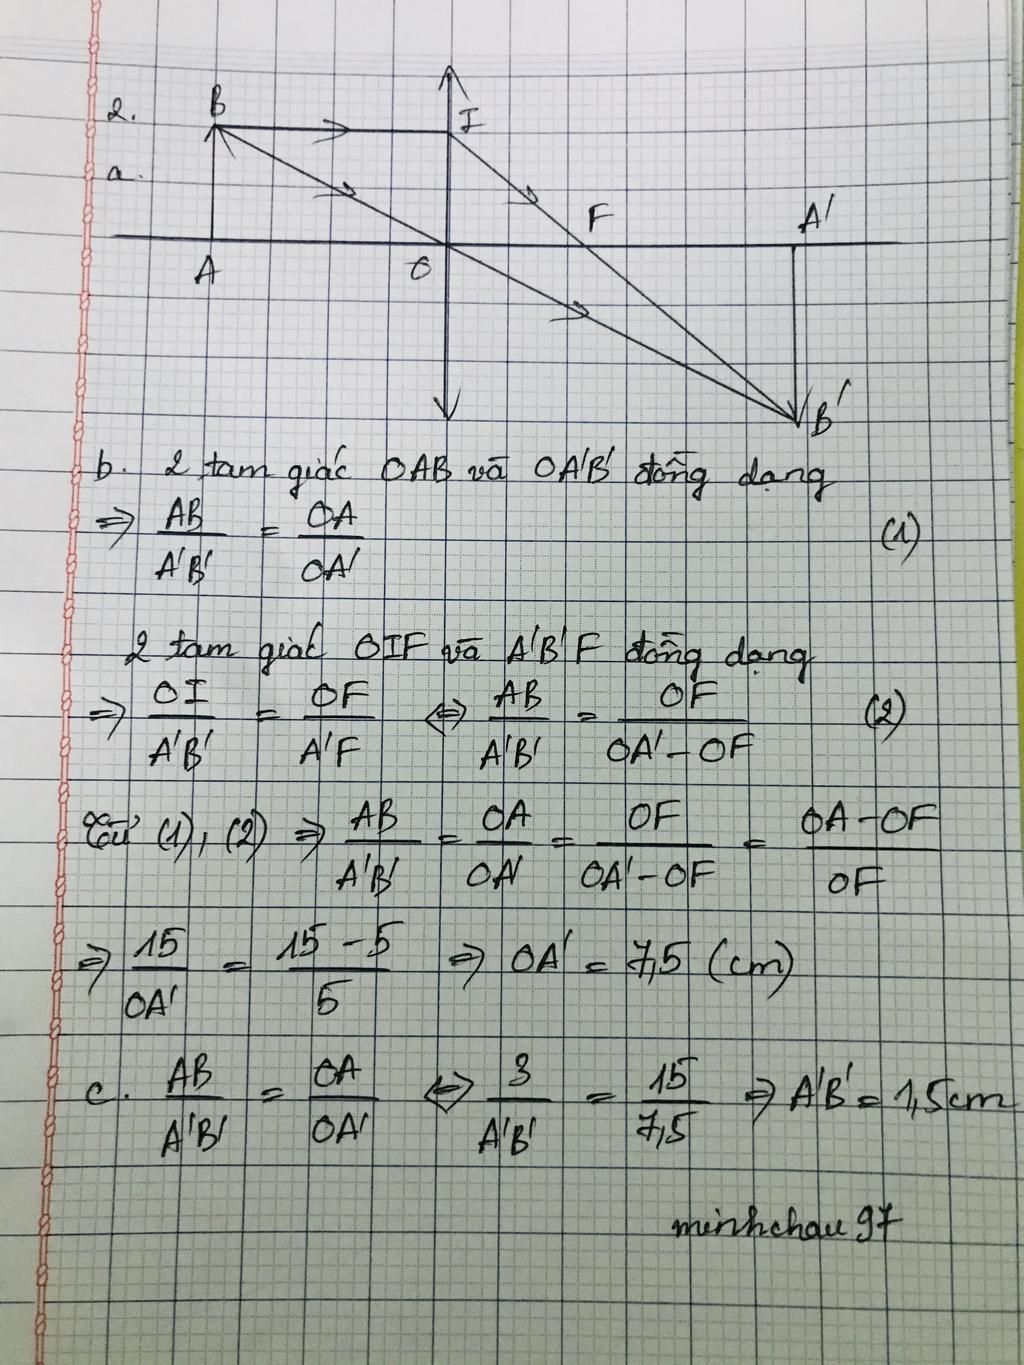 2.
B
I
a.
F
A'
A
O
B'
b. 2 tam giác OAB và OA'B' đồng dạng
=> AB/A'B' = OA/OA' (1)
2 tam giác OIF và A'B'F đồng dạng
=> OI/A'B' = OF/A'F <=> AB/A'B' = OF/OA' - OF (2)
Từ (1), (2) => AB/A'B' = OA/OA' = OF/OA' - OF = OA - OF/OF
=> 15/OA' = 15 - 5/5 => OA' = 7,5 (cm)
c. AB/A'B' = OA/OA' <=> 3/A'B' = 15/7,5 => A'B' = 1,5cm
minhchau97